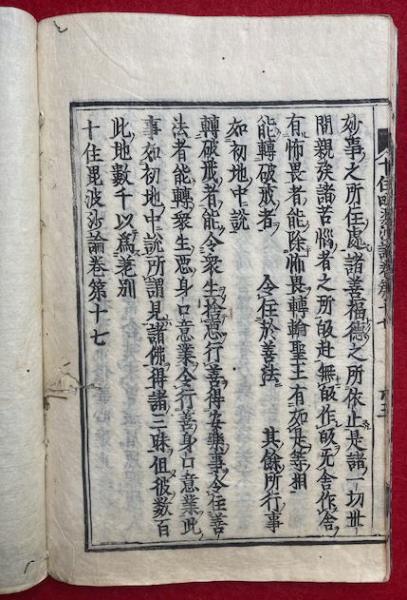 十住毗婆沙論卷第十七
妙事之所住處諸善福德之所依止是諸一切世
間親族諸苦惱者之所皈赴無皈作皈无舍作舍
有怖畏者能除怖畏轉輪聖王有如是等相
能轉破戒者　令住於善法　其餘所行事
如初地中說
轉破戒者能令衆生捨惡行善得安樂事令住善
法者能轉衆生惡身口意業令行善身口意業此
事如初地中說所謂見諸佛得諸三昧但彼數百
此地數千以爲差別
十住毗婆沙論卷第十七